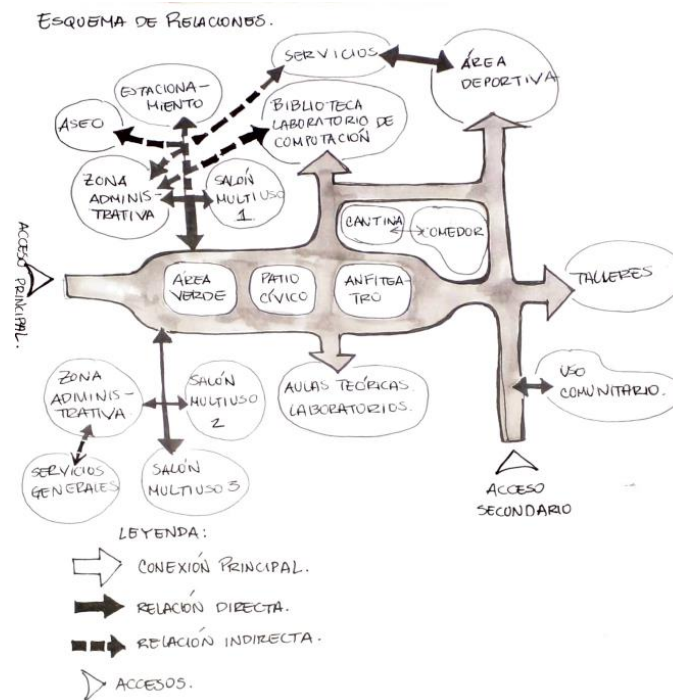 ESQUEMA DE RELACIONES.
SERVICIOS
ÁREA
DEPORTIVA
ESTACIONA-
MIENTO
BIBLIOTECA
LABORATORIO DE
COMPUTACIÓN
ASEO
ZONA
ADMINIS-
TRATIVA
SALÓN
MULTIUSO
1
CANTINA
COMEDOR
ACCESO
PRINCIPAL.
ÁREA
VERDE
PATIO
CÍVICO
ANFITEA-
TRO
TALLERES
ZONA
ADMINIS-
TRATIVA.
SALÓN
MULTIUSO
2
AULAS TEÓRICAS.
LABORATORIOS.
USO
COMUNITARIO.
SERVICIOS
GENERALES
SALÓN
MULTIUSO 3
ACCESO
SECUNDARIO
LEYENDA:
CONEXIÓN PRINCIPAL.
RELACIÓN DIRECTA.
RELACIÓN INDIRECTA.
ACCESOS.